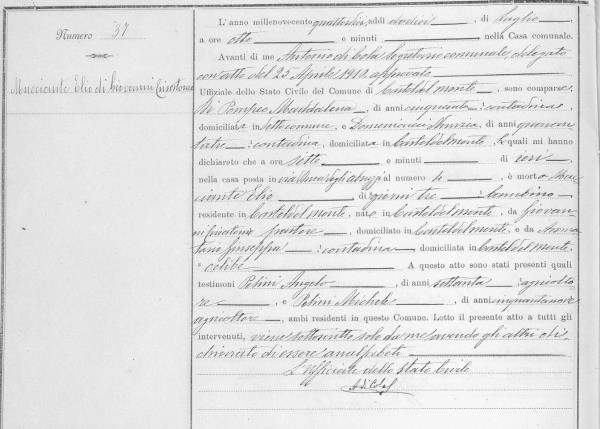 Numero 37
Mucciante Elio di Giovanni Crisostomo
L'anno millenovecento quattordici, addì dodici, di luglio,
a ore otto e minuti, nella Casa comunale.
Avanti di me Antonio di Cola Segretario comunale, delegato
con atto del 23 Aprile 1910, approvato
Uffiziale dello Stato Civile del Comune di Casteldelmonte, sono comparse
Di Pompeo Maddalena, di anni cinquanta contadina
domiciliata in detto comune, e Domenicucci Nunzia, di anni quaran
tatre contadina, domiciliata in Casteldelmonte, le quali mi hanno
dichiarato che a ore sette e minuti di ieri,
nella casa posta in via Duca degli Abruzzi al numero, è morto Muc
ciante Elio di giorni tre bambino
residente in Casteldelmonte, nato in Casteldelmonte, da Giovan
ni pastore, domiciliato in Casteldelmonte, e da
Giuseppa contadina domiciliata in Casteldelmonte
celibe A questo atto sono stati presenti quali
testimoni Petrini Angelo, di anni settanta agricolto
re, e Petrini Michele, di anni cinquantanove
agricoltore, ambi residenti in questo Comune. Letto il presente atto a tutti gli
intervenuti, viene sottoscritto solo da me avendo gli altri di
chiarato di essere analfabeti
L'Ufficiale dello Stato Civile
A di Cola